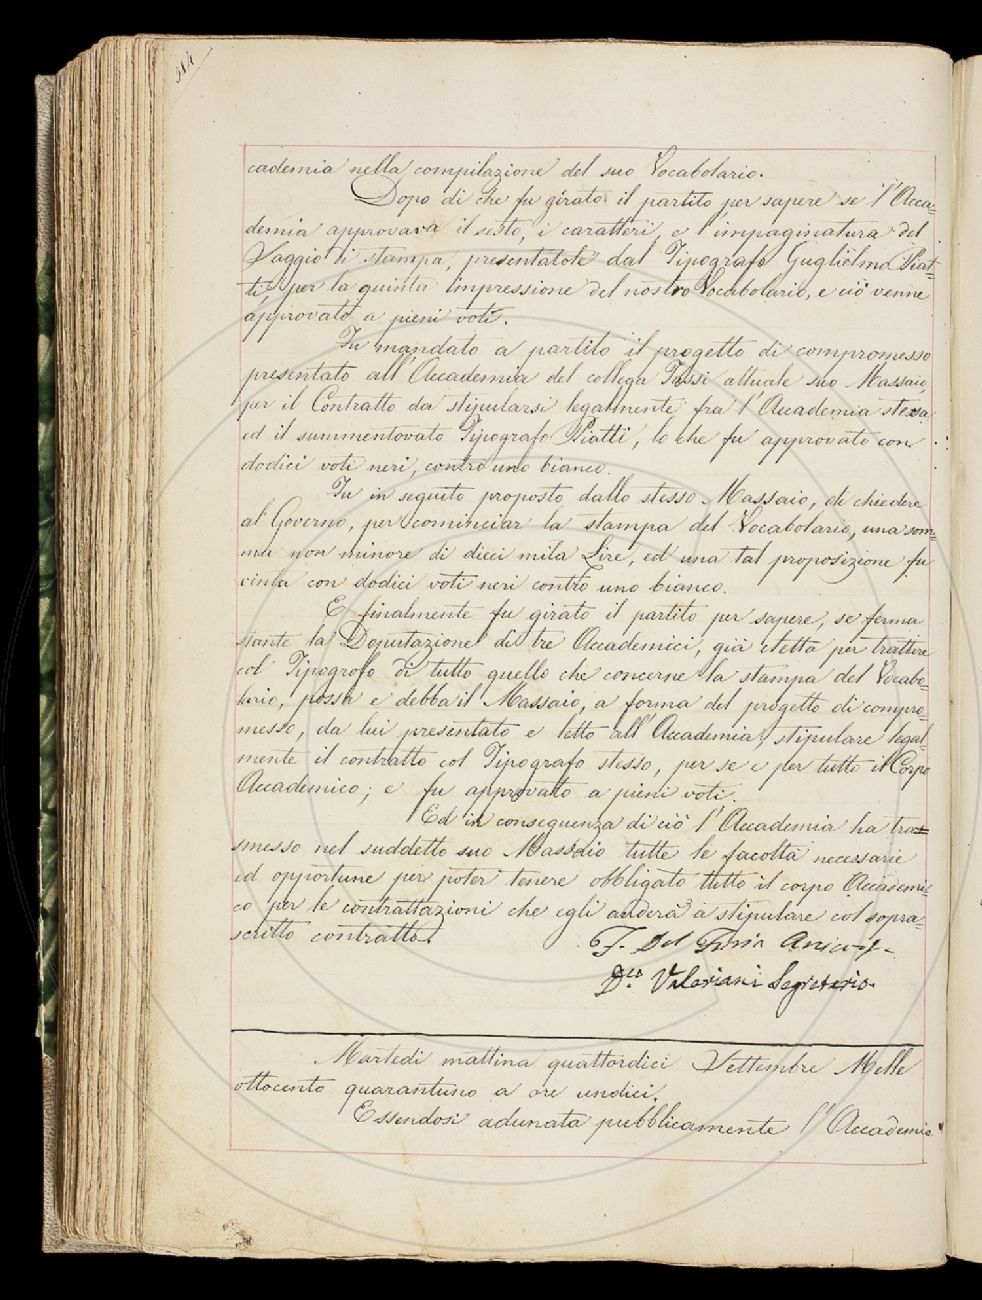 584
cademia nella compilazione del suo Vocabolario.
Dopo di che fu girato il partito per sapere se l'Acca=
demia approvava il sesto, i caratteri, e l'impaginatura del
Saggio di stampa, presentatole dal Tipografo Guglielmo Piat=
ti, per la quinta impressione del nostro Vocabolario, e ciò venne
approvato a pieni voti.
Fu mandato a partito il progetto di compromesso
presentato all'Accademia del collega Tassi attuale suo Massaio,
per il Contratto da stipularsi legalmente fra l'Accademia stessa
ed il summentovato Tipografo Piatti, lo che fu approvato con
dodici voti neri, contro uno bianco.
Fu in seguito proposto dallo stesso Massaio, di chiedere
al Governo, per cominciar la stampa del Vocabolario, una som=
ma non minore di dieci mila Lire, ed una tal proposizione fu
vinta con dodici voti neri contro uno bianco.
E finalmente fu girato il partito per sapere, se ferma
stante la Deputazione di tre Accademici, già eletta per trattare
col Tipografo di tutto quello che concerne la stampa del Vocabo=
lario, possa e debba il Massaio, a forma del progetto di compro=
messo, da lui presentato e letto all'Accademia, stipulare legal=
mente il contratto col Tipografo stesso, per se e per tutto il Corpo
Accademico; e fu approvato a pieni voti.
Ed in conseguenza di ciò l'Accademia ha tras=
smesso nel suddetto suo Massaio tutte le facoltà necessarie
ed opportune per poter tenere obbligato tutto il corpo Accademi=
co per le contrattazioni che egli anderà a stipulare col sopra=
scritto contratto.
F. Del Furia Arcic.
D.co Valeriani Segretario.
Martedì mattina quattordici Settembre Mille
ottocento quarantuno a ore undici.
Essendosi adunata pubblicamente l'Accademia